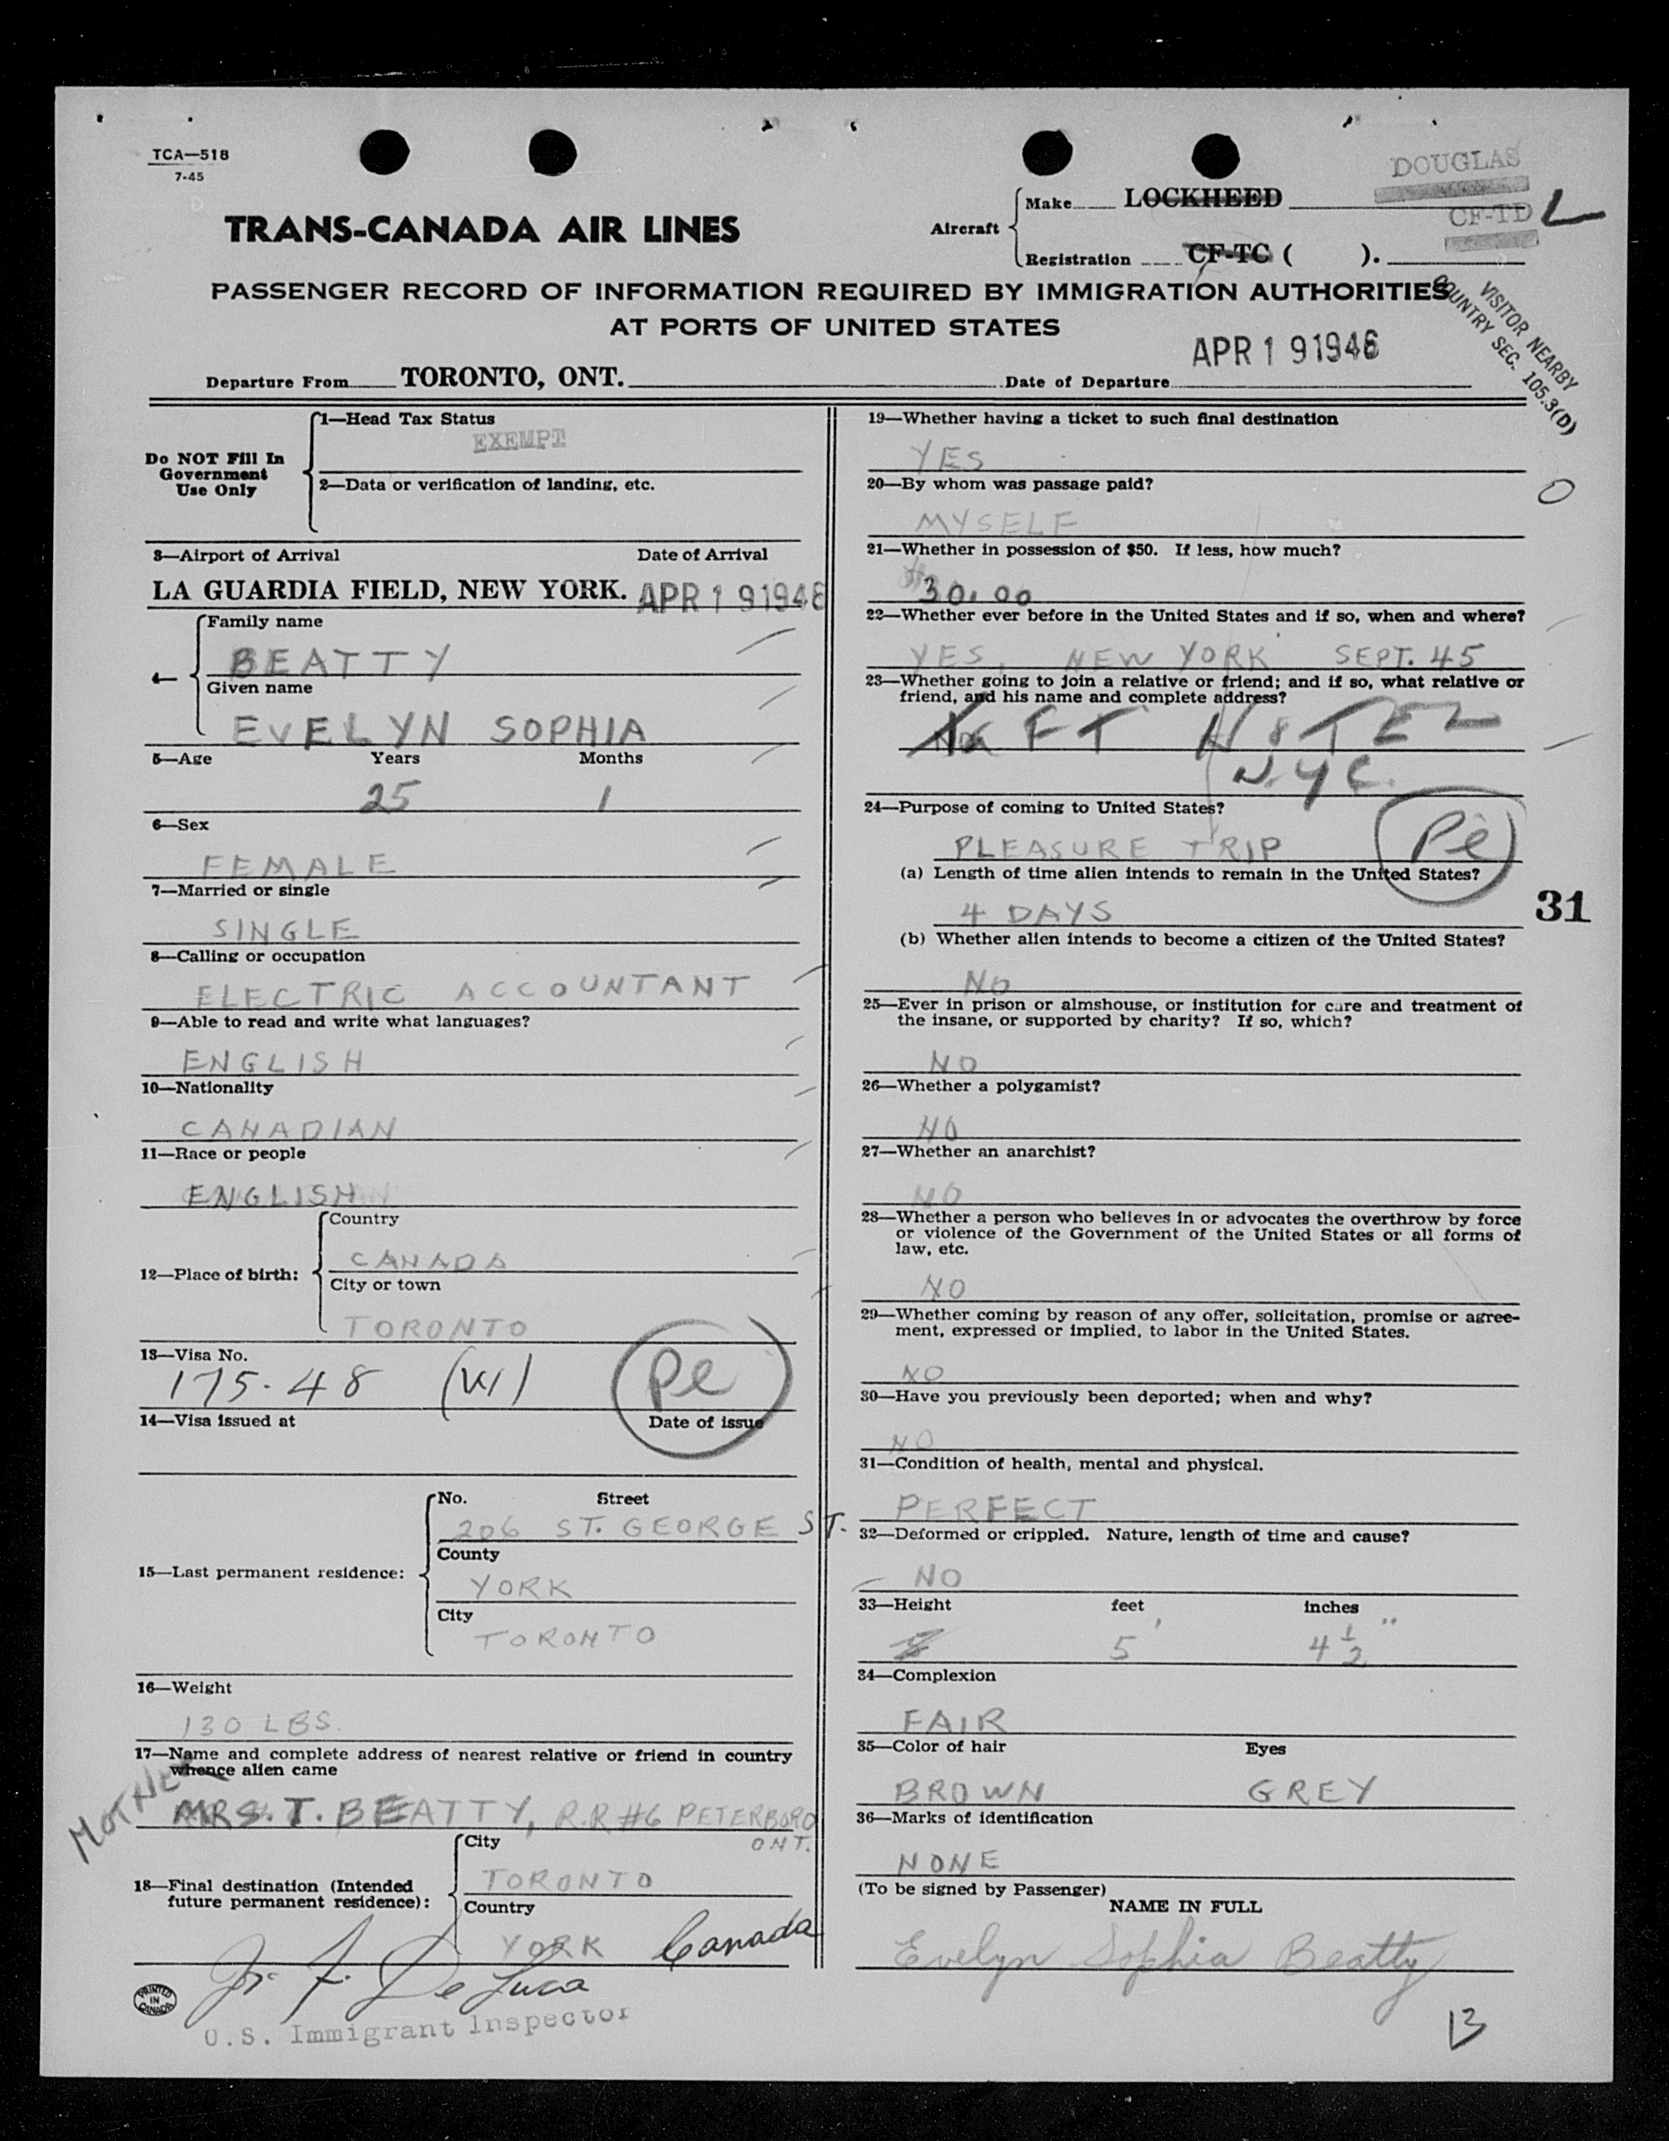 TCA—518
7-45
DOUGLAS
CF-TD L
TRANS-CANADA AIR LINES
Aircraft
Make LOCKHEED
Registration CF-TC ( ).
PASSENGER RECORD OF INFORMATION REQUIRED BY IMMIGRATION AUTHORITIES
AT PORTS OF UNITED STATES
VISITOR NEARBY
COUNTRY SEC. 105.3(D)
Departure From TORONTO, ONT. Date of Departure APR 19 1946
Do NOT Fill In
Government
Use Only
1—Head Tax Status
EXEMPT
2—Data or verification of landing, etc.
3—Airport of Arrival Date of Arrival
LA GUARDIA FIELD, NEW YORK. APR 19 1946
4—
Family name
BEATTY
Given name
EVELYN SOPHIA
5—Age Years Months
25 1
6—Sex
FEMALE
7—Married or single
SINGLE
8—Calling or occupation
ELECTRIC ACCOUNTANT
9—Able to read and write what languages?
ENGLISH
10—Nationality
CANADIAN
11—Race or people
ENGLISH
12—Place of birth:
Country
CANADA
City or town
TORONTO
13—Visa No.
175-48 (VI) Pe
14—Visa issued at Date of issue
15—Last permanent residence:
No. Street
206 ST. GEORGE ST.
County
YORK
City
TORONTO
16—Weight
130 LBS.
17—Name and complete address of nearest relative or friend in country
whence alien came
MOTHER
MRS. T. BEATTY, R.R #6 PETERBORO
ONT.
18—Final destination (Intended
future permanent residence):
City
TORONTO
Country
YORK Canada
De Luca
U.S. Immigrant Inspector
PRINTED
IN
CANADA
19—Whether having a ticket to such final destination
YES
20—By whom was passage paid?
O
MYSELF
21—Whether in possession of $50. If less, how much?
$30.00
22—Whether ever before in the United States and if so, when and where?
YES, NEW YORK SEPT. 45
23—Whether going to join a relative or friend; and if so, what relative or
friend, and his name and complete address?
TAFT HOTEL
N.Y.C.
24—Purpose of coming to United States?
PLEASURE TRIP Pe
(a) Length of time alien intends to remain in the United States?
4 DAYS
31
(b) Whether alien intends to become a citizen of the United States?
NO
25—Ever in prison or almshouse, or institution for care and treatment of
the insane, or supported by charity? If so, which?
NO
26—Whether a polygamist?
NO
27—Whether an anarchist?
NO
28—Whether a person who believes in or advocates the overthrow by force
or violence of the Government of the United States or all forms of
law, etc.
NO
29—Whether coming by reason of any offer, solicitation, promise or agree-
ment, expressed or implied, to labor in the United States.
NO
30—Have you previously been deported; when and why?
NO
31—Condition of health, mental and physical.
PERFECT
32—Deformed or crippled. Nature, length of time and cause?
NO
33—Height feet inches
5' 4½"
34—Complexion
FAIR
35—Color of hair Eyes
BROWN GREY
36—Marks of identification
NONE
(To be signed by Passenger)
NAME IN FULL
Evelyn Sophia Beatty
13